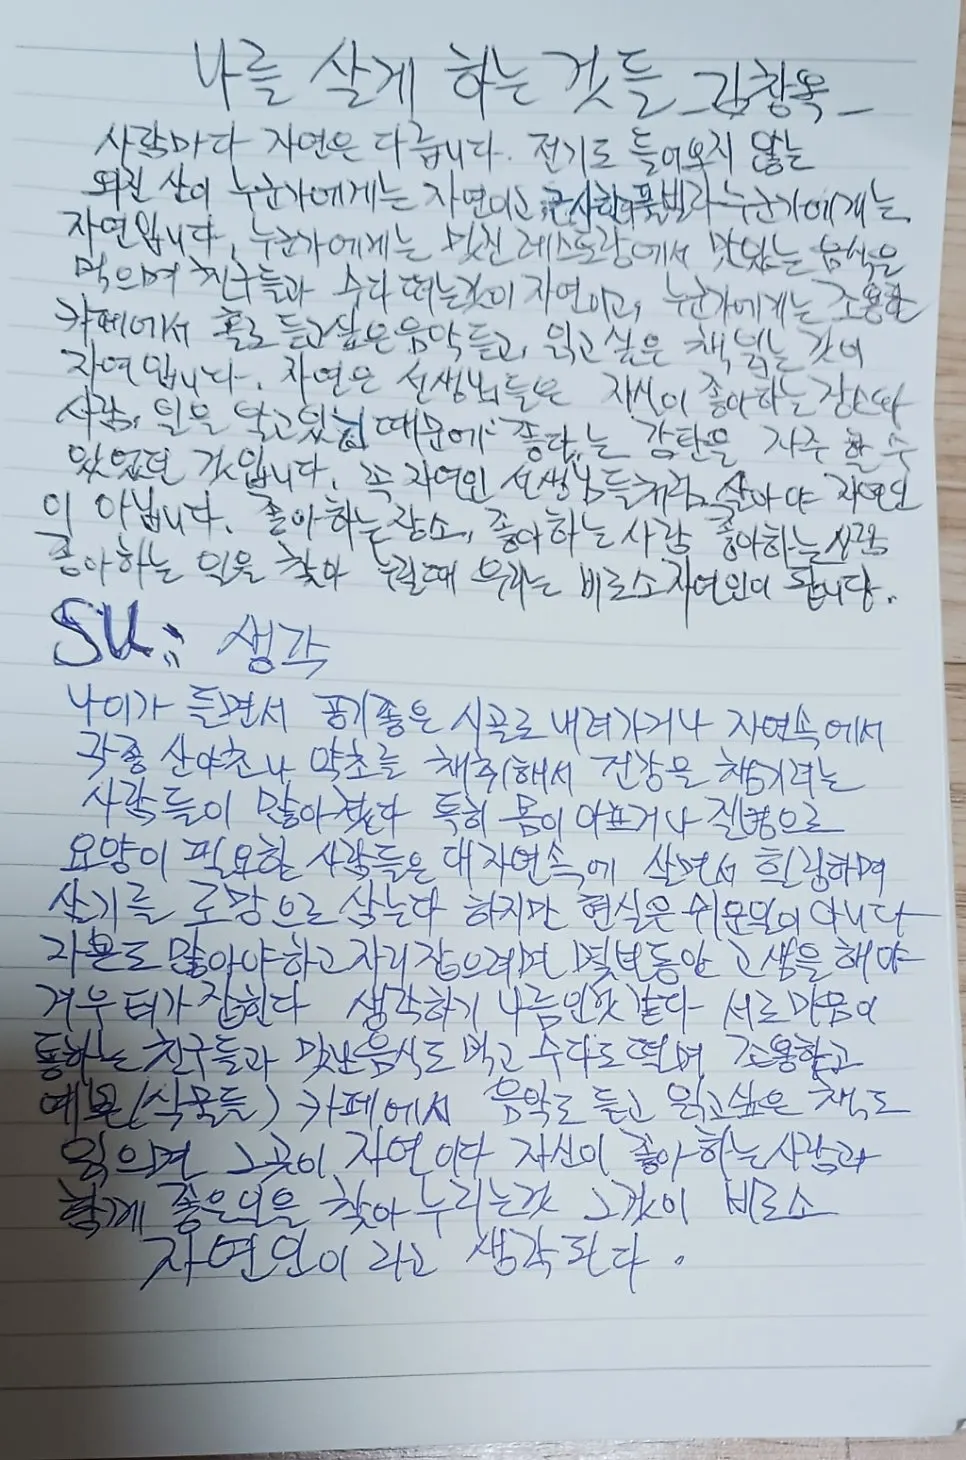 나를 살게 하는 것들 _김창옥_
사람마다 자연은 다릅니다. 전기도 들어오지 않는
외진 산이 누군가에게는 자연이고, 근사한 풀빌라 누군가에게는
자연입니다. 누군가에게는 멋진 레스토랑에서 맛있는 음식을
먹으며 친구들과 수다 떠는것이 자연이고, 누군가에게는 조용한
카페에서 홀로 듣고싶은음악듣고, 읽고싶은 책 읽는 것이
자연입니다. 자연은 선생님들은 자신이 좋아하는 장소와
사람, 일을 알고있 때문에 좋다,는 감탄을 자주 할 수
있었던 것입니다. 꼭 자연인 선생님들처럼 살아야 자연인
이 아닙니다. 좋아하는장소, 좋아하는 사람 좋아하는 사람
좋아하는 일을 찾아 누릴때 우리는 비로소자연인이 됩니다.
SU: 생각
나이가 들면서 공기좋은 시골로 내려가거나 자연속에서
각종 산야초나 약초를 채취해서 건강을 챙기려는
사람들이 많아졌다 특히 몸이 아프거나 질병으로
요양이 필요한 사람들은 대자연속에 살면서 힐링하며
살기를 로망으로 삼는다 하지만 현실은 쉬운일이 아니다
자본도 많아야하고 자리잡으려며 몇년동안 고생을 해야
겨우 터가 잡힌다 생각하기 나름인것 같다 서로마음이
통하는 친구들과 맛난음식도 먹고 수다도 떨며 조용하고
예쁜(식물들) 카페에서 음악도 듣고 읽고싶은 책도
읽으며 그곳이 자연이다 자신이 좋아하는사람과
함께 좋은일을 찾아 누리는것 그것이 비로소
자연인이라고 생각된다.